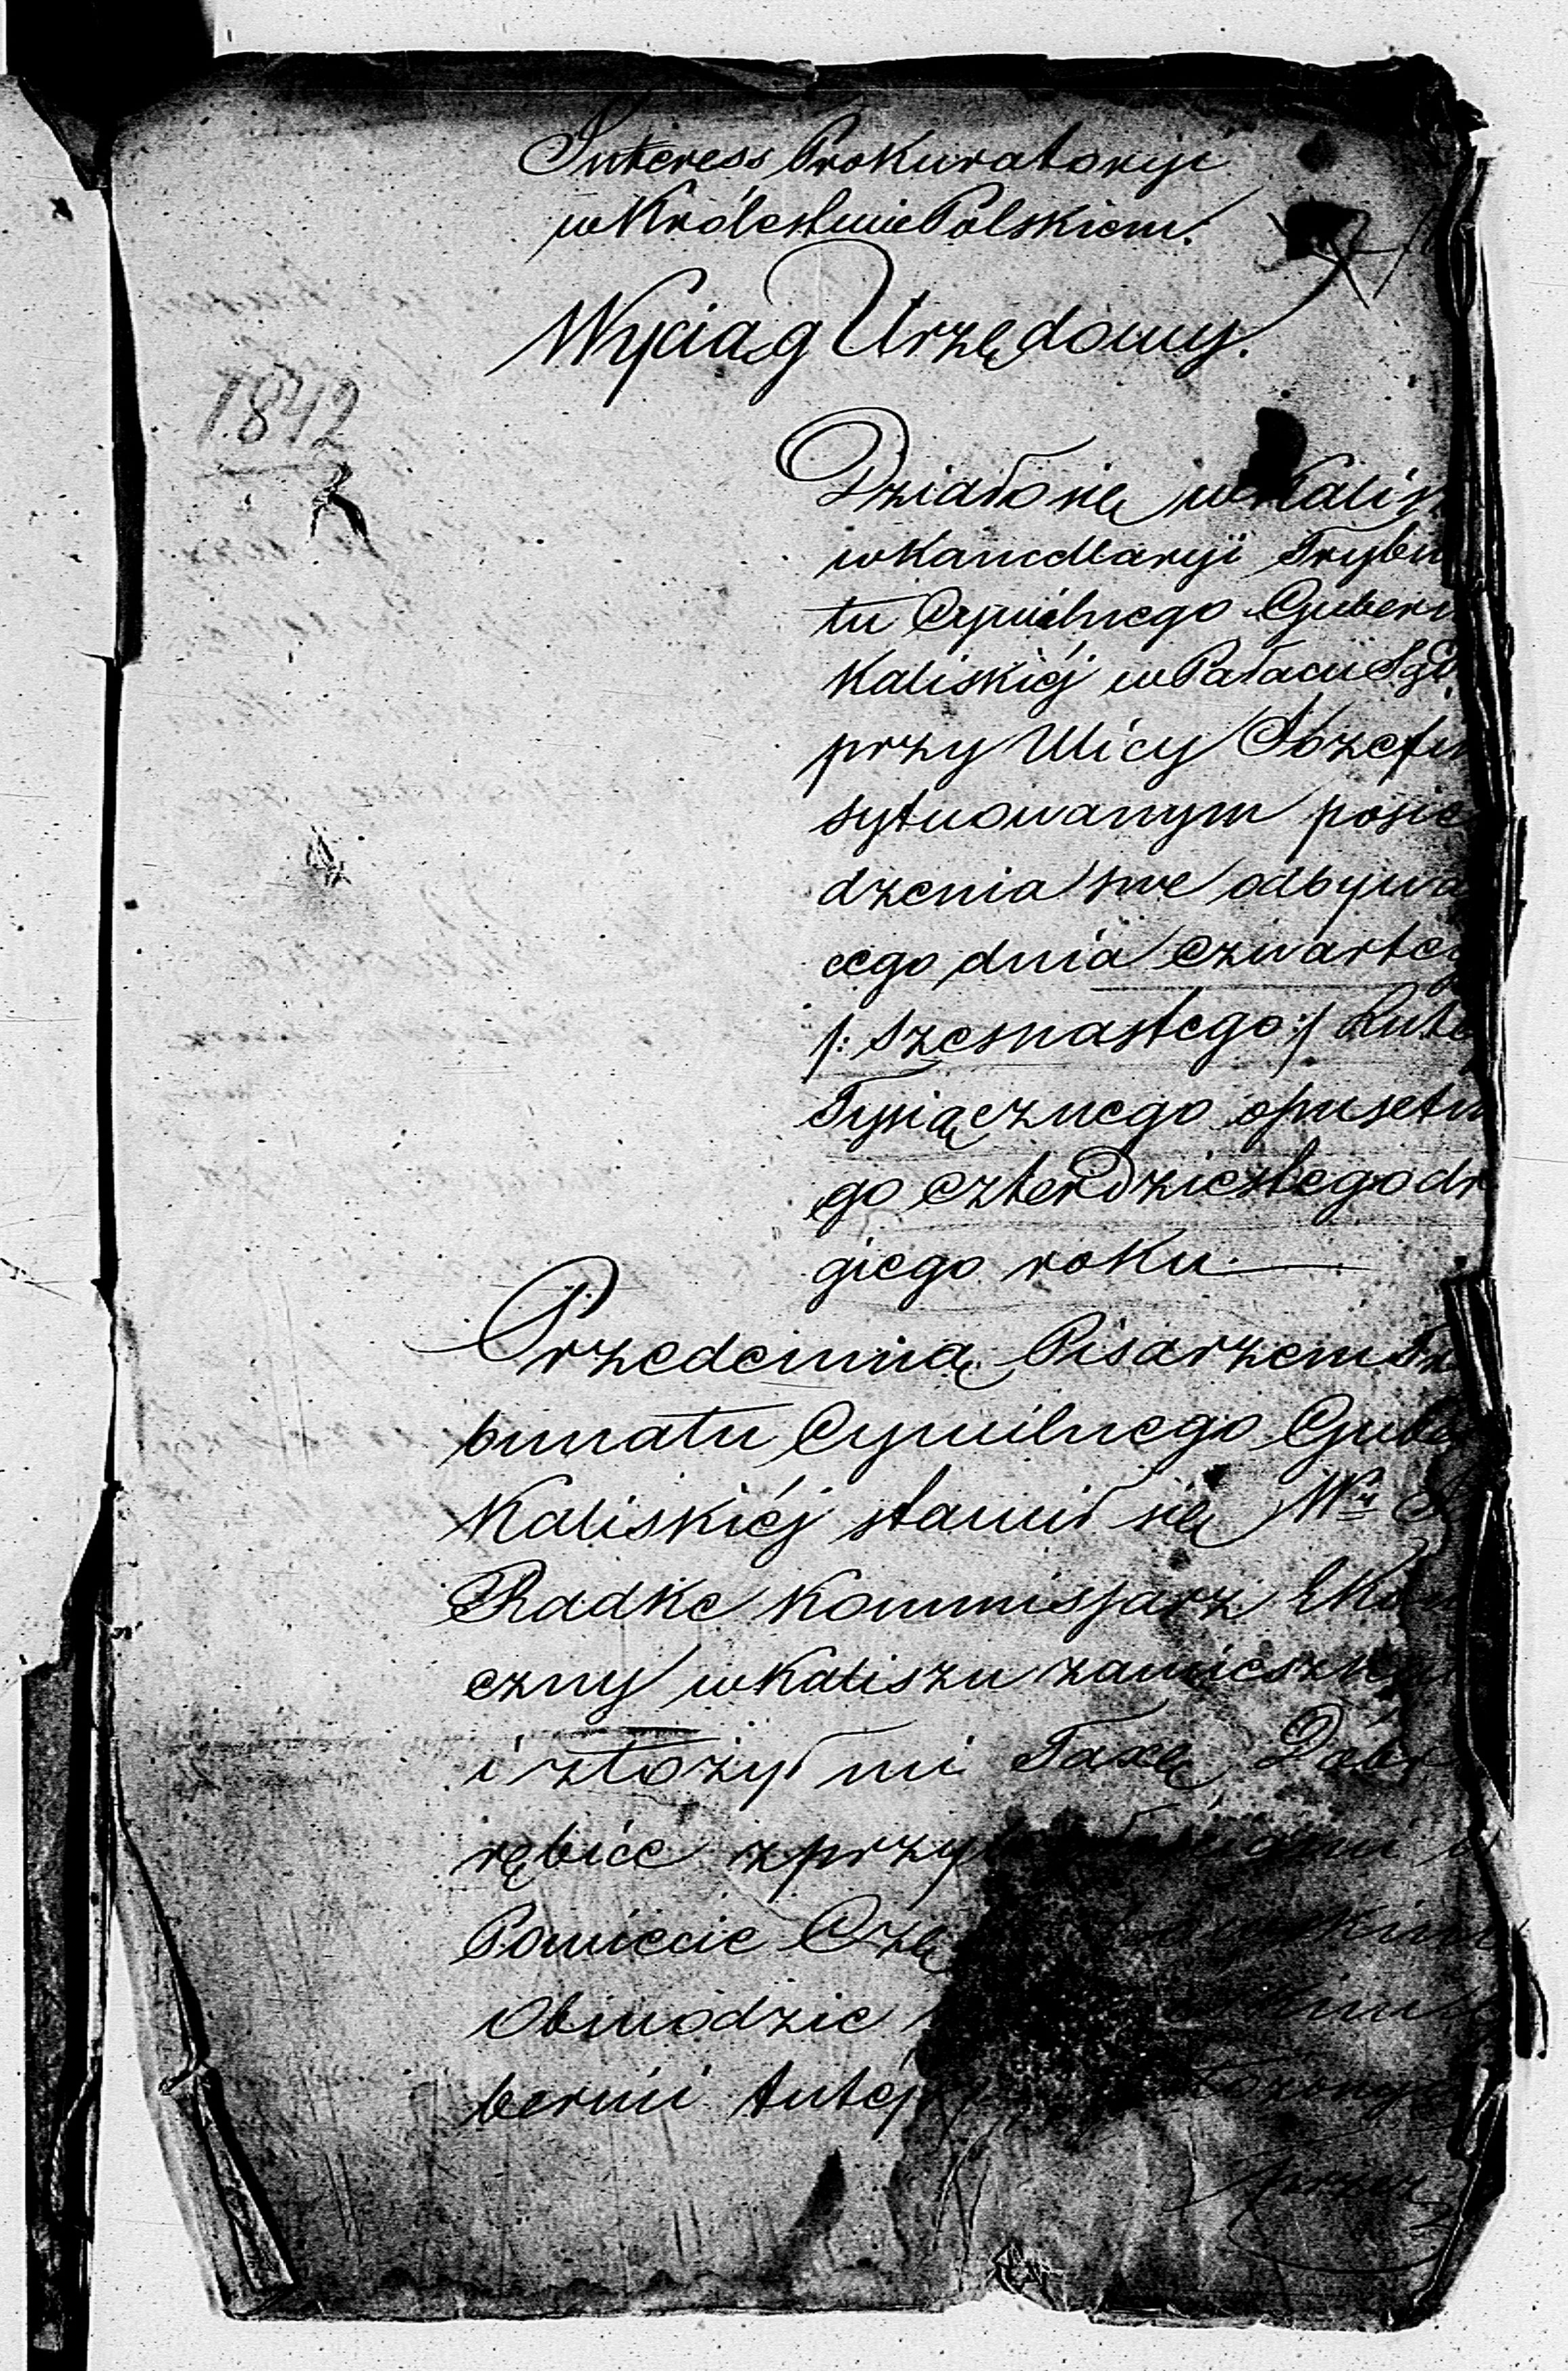 Interess Prokuratoryi
w Królestwie Polskiem.
Wyciąg Urzędowy.
1842
Działo się w Kalis
w Kancellaryi Trybu
łu Cywilnego Guber
Kaliskiéj w Pałacu Sąd
przy Ulicy Józefi
sytuowanym posie
dzenia swe odbywa
cego dnia czwarteg
/: szesnastego :/ Lute
Tysiącznego ośmsetn
go czterdziestego dr
giego roku.
Przedemną Pisarzem Try
bunału Cywilnego Gube
Kaliskiéj stawił się Wny
Radke Kommissarz Ekon
czny w Kaliszu zamieszk
i złożył mi Taxę Dóbr
rębice z przyległościami
Powiecie
Obwodzie
bernii tutéj